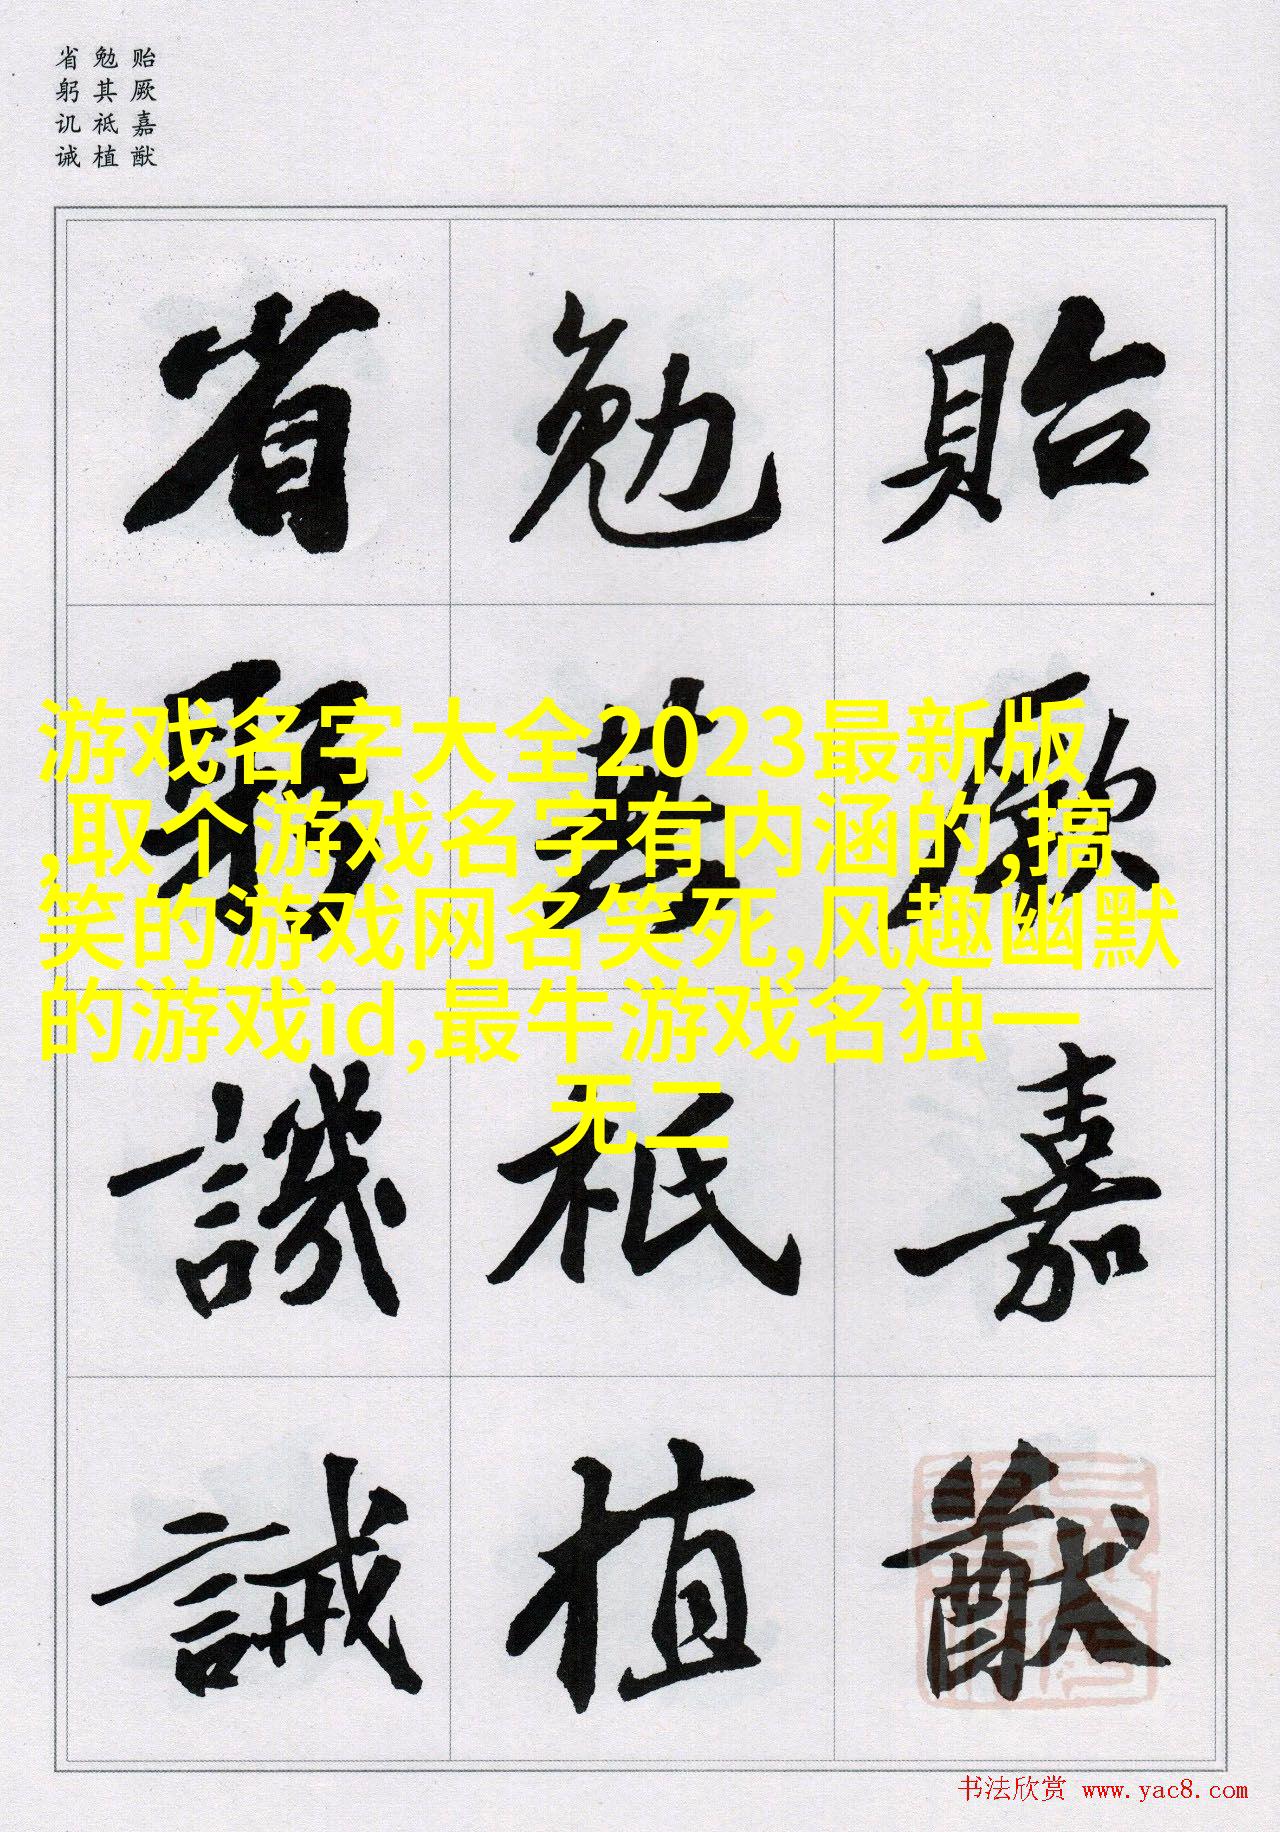 贻厥嘉猷
勉其祗植
省躬讥诫
貽厥嘉猷
勉其祗植
省躬譏誡
游戏名字大全2023最新版
,取个游戏名字有内涵的,搞
笑的游戏网名笑死,风趣幽默
的游戏id,最牛游戏名独一
无二
书法欣赏 www.yac8.com